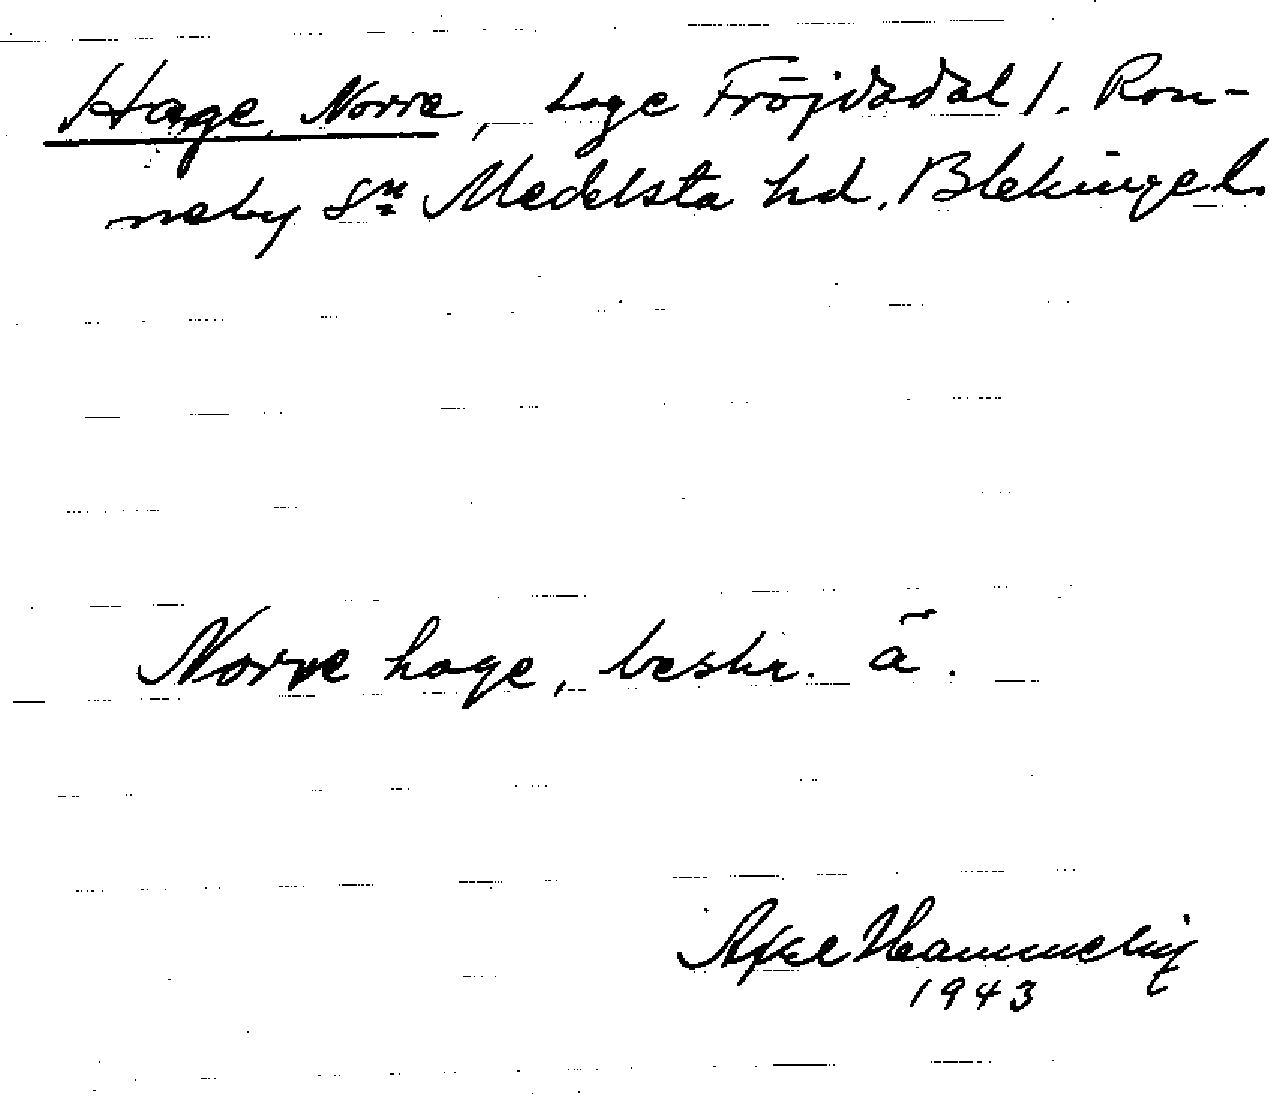 Hage, Norre, hage Fröjdadal 1. Ron-
neby Sn Medelsta hd. Blekinge l.
Norre hage, beskr. ä.
Axel
1943